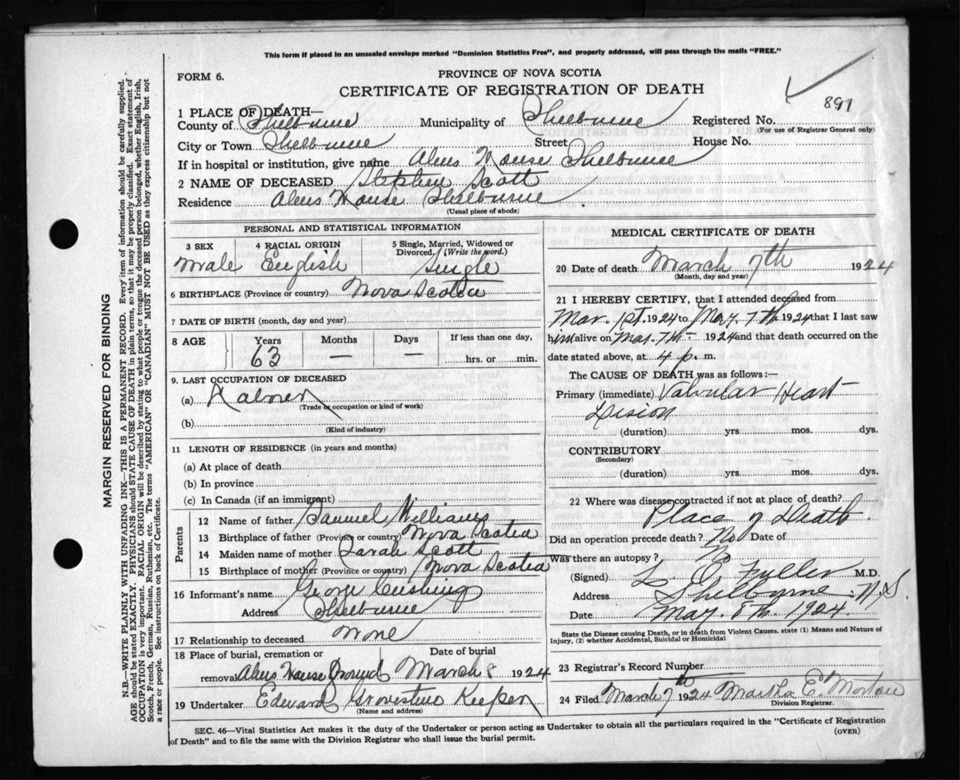 This form if placed in an unsealed envelope marked "Dominion Statistics Free", and properly addressed, will pass through the mails "FREE."
FORM 6.
PROVINCE OF NOVA SCOTIA
CERTIFICATE OF REGISTRATION OF DEATH
891
1 PLACE OF DEATH—
County of Shelburne Municipality of Shelburne Registered No.
(For use of Registrar General only)
City or Town Shelburne Street House No.
If in hospital or institution, give name Alms House Shelburne
2 NAME OF DECEASED Stephen Scott
Residence Alms House Shelburne
(Usual place of abode)
PERSONAL AND STATISTICAL INFORMATION
3 SEX 4 RACIAL ORIGIN 5 Single, Married, Widowed or Divorced. (Write the word.)
Male English Single
6 BIRTHPLACE (Province or country) Nova Scotia
7 DATE OF BIRTH (month, day and year)
8 AGE Years Months Days If less than one day,
63 — — hrs. or min.
9. LAST OCCUPATION OF DECEASED
(a)
(Trade or occupation or kind of work)
(b)
(Kind of industry)
11 LENGTH OF RESIDENCE (in years and months)
(a) At place of death
(b) In province
(c) In Canada (if an immigrant)
Parents
12 Name of father Samuel Williams
13 Birthplace of father (Province or country) Nova Scotia
14 Maiden name of mother Sarah Scott
15 Birthplace of mother (Province or country) Nova Scotia
16 Informant's name George Cushing
Address Shelburne
17 Relationship to deceased None
18 Place of burial, cremation or removal Date of burial
Alms House March 8 1924
19 Undertaker Edward Keeper
(Name and address)
MEDICAL CERTIFICATE OF DEATH
20 Date of death March 7th 1924
(Month, day and year)
21 I HEREBY CERTIFY, that I attended deceased from
Mar. 1st 1924 to Mar. 7th 1924 that I last saw
him alive on Mar. 7th 1924 and that death occurred on the
date stated above, at 4 p. m.
The CAUSE OF DEATH was as follows:—
Primary (immediate) Valvular Heart
Lision
(duration) yrs. mos. dys.
CONTRIBUTORY
(Secondary)
(duration) yrs. mos. dys.
22 Where was disease contracted if not at place of death?
Place of Death.
Did an operation precede death? No Date of
Was there an autopsy? No
(Signed) L. O. Fuller M.D.
Address Shelburne N.S.
Date Mar. 8th. 1924
State the Disease causing Death, or in death from Violent Causes, state (1) Means and Nature of
Injury, (2) whether Accidental, Suicidal or Homicidal
23 Registrar's Record Number
24 Filed March 7th 1924 Martha E. Morton
Division Registrar.
SEC. 46—Vital Statistics Act makes it the duty of the Undertaker or person acting as Undertaker to obtain all the particulars required in the "Certificate of Registration
of Death" and to file the same with the Division Registrar who shall issue the burial permit.
(OVER)
MARGIN RESERVED FOR BINDING
N.B.—WRITE PLAINLY WITH UNFADING INK—THIS IS A PERMANENT RECORD. Every item of information should be carefully supplied.
AGE should be stated EXACTLY. PHYSICIANS should STATE CAUSE OF DEATH in plain terms, so that it may be properly classified. Exact statement of
OCCUPATION is very important. RACIAL ORIGIN will be described by stating to what people or tongue the deceased person belonged, whether English, Irish,
Scotch, French, German, Russian, Ruthenian, etc. The terms "AMERICAN" or "CANADIAN" MUST NOT BE USED as they express citizenship but not
a race or people. See instructions on back of Certificate.